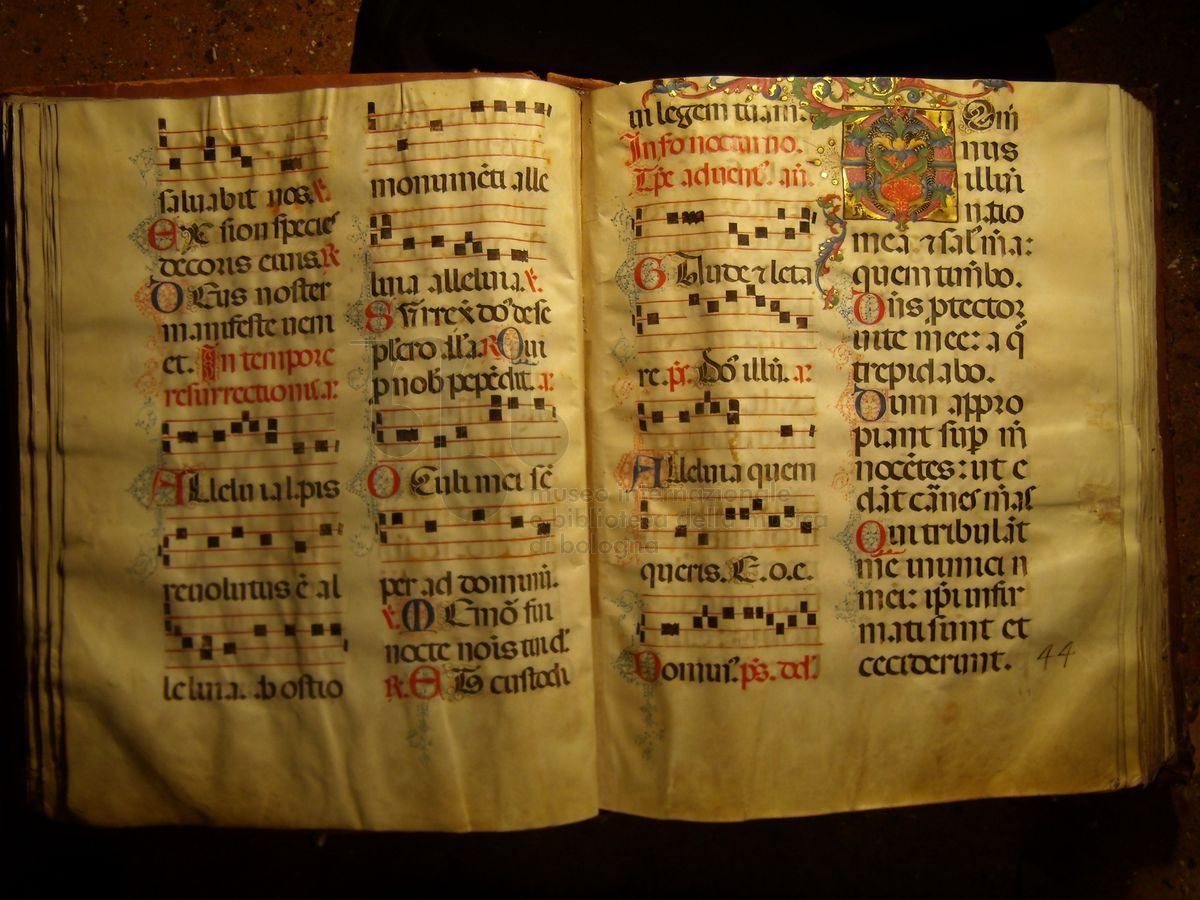 saluabit nos. ℣.
EX sion species
decoris eius. R
DEus noster
manifeste veniet
et. In tempore
resurrectionis. a.
ALleluia lapis
reuolutus ē al
leluia. ab ostio
monumēti alle
luia alleluia. ℣.
Surrexˀ dōˀ de se
pulcro all'a. R Qui
p nob pepēdit. a.
OCuli mei sē
per ad dominū.
℣. MEmō fui
nocte nōis tui d.
R. ET custodi
in legem tuam.
In fo nocturno.
Tpe aduent. añ.
GAude ⁊ leta
re. ps. Dōˀ illū. a.
ALleluia quem
queris. E.o.e.
Dominˀ. ps. del.
Domi
nus
illumi
natio
mea ⁊ salˀ mea:
quem timebo.
Dn̄s ptector
uite mee: a q̄
trepidabo.
Dum appro
piant sup m̄
nocētes: ut e
dāt carnes meas
Qui tribulāt
me inimici
mei: ip̄i infir
mati sunt et
ceciderunt.
44
museo internazionale
e biblioteca della musica
di bologna